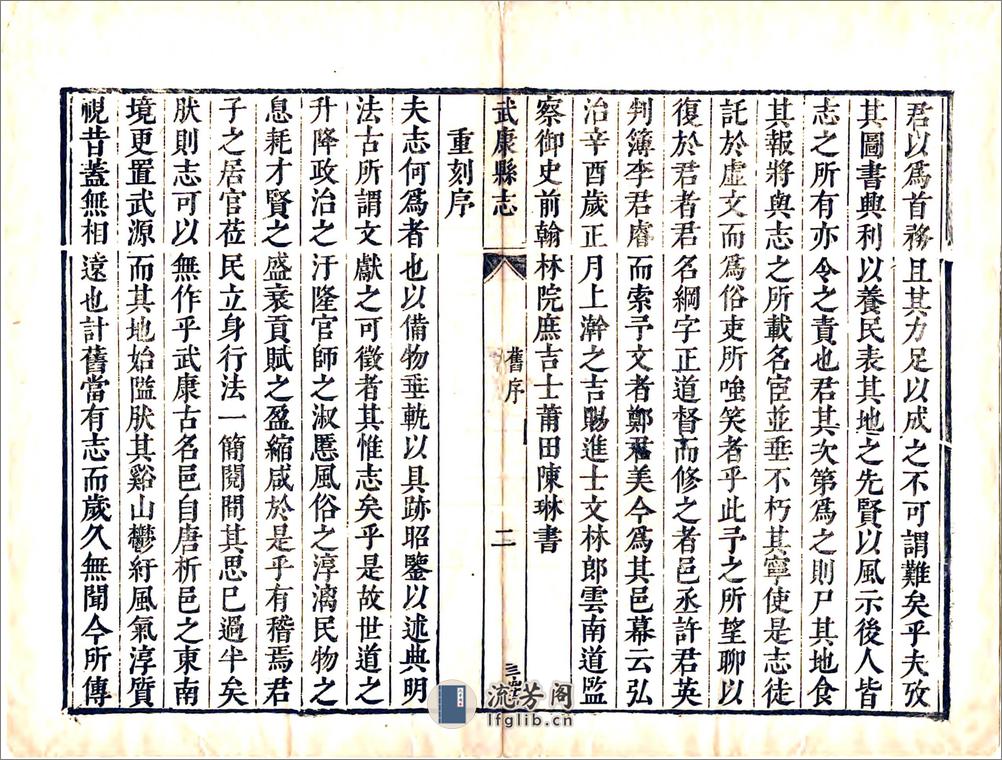 君以爲首務且其力足以成之不可謂難矣乎夫攷
其圖書興利以養民表其地之先賢以風示後人皆
志之所有亦令之責也君其次第爲之則尸其地食
其報將與志之所載名宦並垂不朽其寧使是志徒
託於虛文而爲俗吏所嗤笑者乎此予之所望聊以
復於君者君名綱字正道督而修之者邑丞許君英
判簿李君睿而索予文者鄭君美今爲其邑幕云弘
治辛酉歲正月上澣之吉賜進士文林郎雲南道監
察御史前翰林院庶吉士莆田陳琳書
武康縣志
舊序
二
重刻序
夫志何爲者也以備物垂軌以具跡昭鑒以述典明
法古所謂文獻之可徵者其惟志矣乎是故世道之
升降政治之汙隆官師之淑慝風俗之淳漓民物之
息耗才賢之盛衰貢賦之盈縮咸於是乎有稽焉君
子之居官莅民立身行法一簡閱間其思已過半矣
肰則志可以無作乎武康古名邑自唐析邑之東南
境更置武源而其地始隘肰其谿山鬱紆風氣淳質
視昔蓋無相遠也計舊當有志而歲久無聞今所傳
流芳阁
lfglib.cn